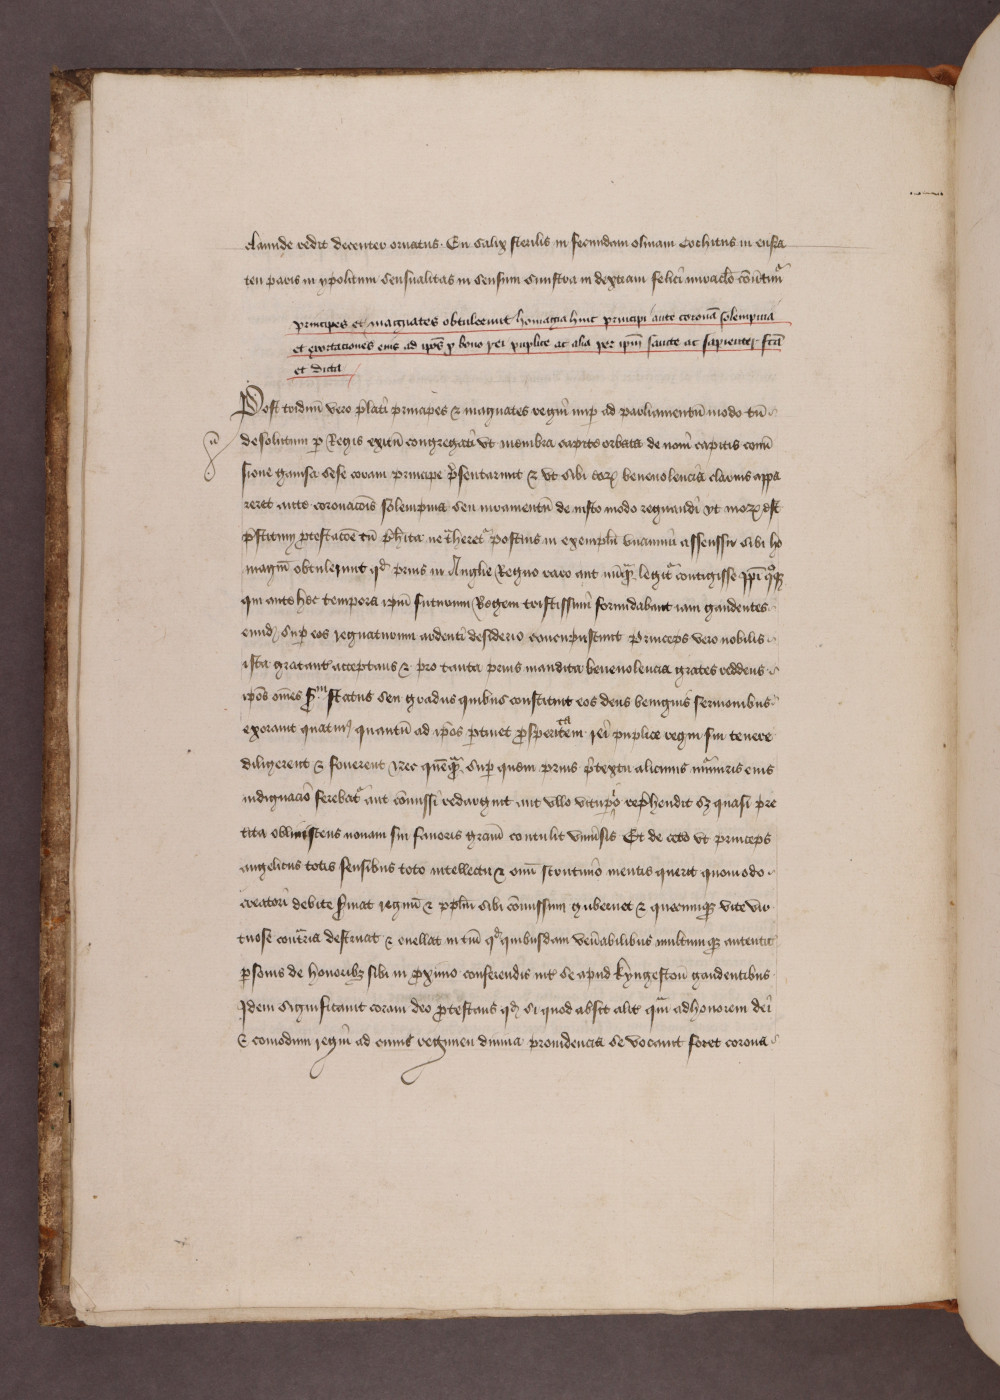 clamide redit decenter ornatus. En salix sterilis in fecundam oliuam Cochitus in eufra
ten paris in ypolitum sensualitas in sensum sinistra in dexteram felici miraclo conuertitur
principes et magnates obtulerunt homagia huic principi ante coronam solempnia
et exortaciones eius ad ipos p bono rei puplice ac alia per ipm sancte ac sapienter fca
et dicta
Post triduum vero plati principes & magnates regni nup ad parliamentum modo tn
desolutum p Regis exitu congregati vt membra capite orbata de noui capitis com
sione gauisa sese coram principe psentarunt & vt sibi eorum beneuolencia clarius appa
reret ante coronacois solempnia seu iuramentum de iusto modo regnandi vt moris est
pstitum protestacoe tn phita ne traheretur postius in exemplum vnanimi assensu sibi ho
magium obtulerunt qd prius in Anglie Regno raro aut nuqm legitur contigisse
qui ante hec tempora ipm futurum Regem tristissimi formidabant iam gaudentes
eund sup eos regnaturum ardenti desiderio concupiscunt Princeps vero nobilis
ista gratant acceptans & pro tanta prius inaudita beneuolencia grates reddens
ipos omes scdm status seu gradus quibus constituit eos deus benignis sermonibus
exorauit quatinus quantum ad ipos ptinet prosperitatem rei puplice regni sui tenere
diligerent & fouerent Nec quemqm sup quem prius ptextu alicuius iniurie eius
indignacio ferebatur aut comissi redarguit aut vllo vitupio reprehendit sz quasi pre
tita obliuiscens nouam sui fauoris gram contulit vniuersis Et de cetero vt princeps
angelicus totis sensibus toto intellectu & omi scrutinio mentis querit quomodo
creatori debite seruiat regnum & pplm sibi comissum gubernet & quecumque vite vir
tuose contraria destruat & euellat in tm qd quibusdam venabilibus multumque autentic
psonis de honoribus sibi in proximo conferendis int se apud kyngeston gaudentibus
Idem significauit coram deo protestans qd si quod absit alit qm ad honorem dei
& comodum regni ad cuius regimen diuina prouidencia se vocauit foret corona